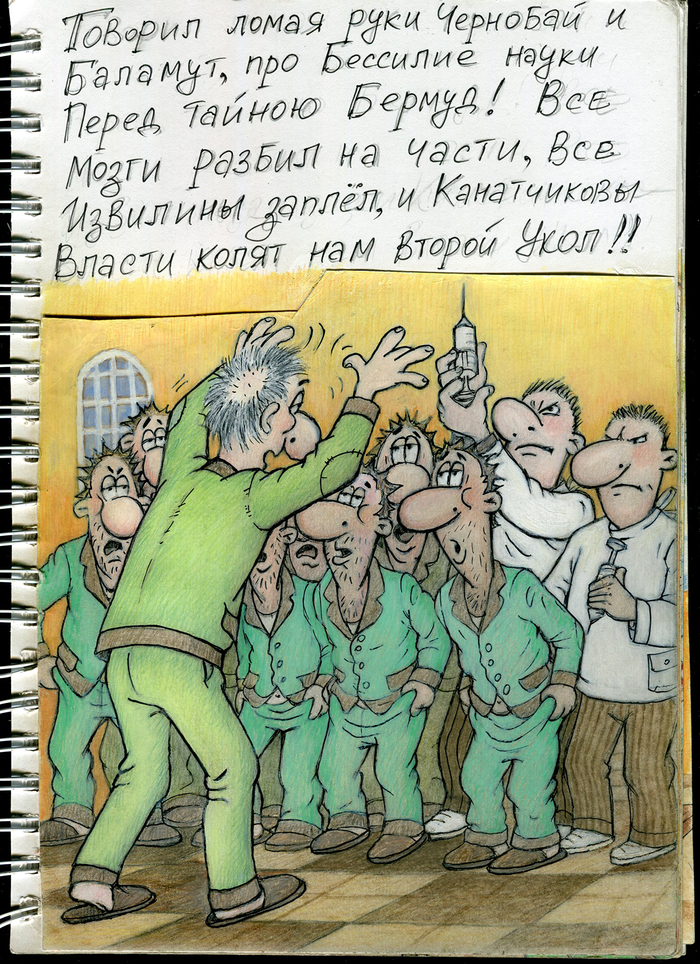 Говорил ломая руки Чернобай и
Баламут, про Бессилие науки
Перед тайною Бермуд! Все
мозги разбил на части, все
Извилины заплёл, и Канатчиковы
Власти колят нам второй Укол!!